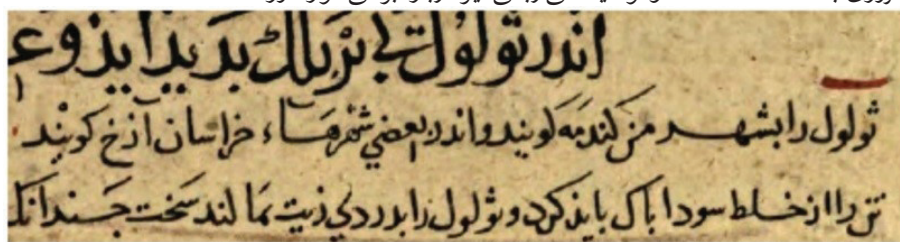 اندر ثولول کی بر پلک بدید ایذ وع
ثولول را بشهر من کندمه کویند و اندر بعضی شهرهاء خراسان آزخ کویند
تن را از خلط سودا باک بایذ کرد و ثولول را بدردی زیت بمالند سخت جندانک